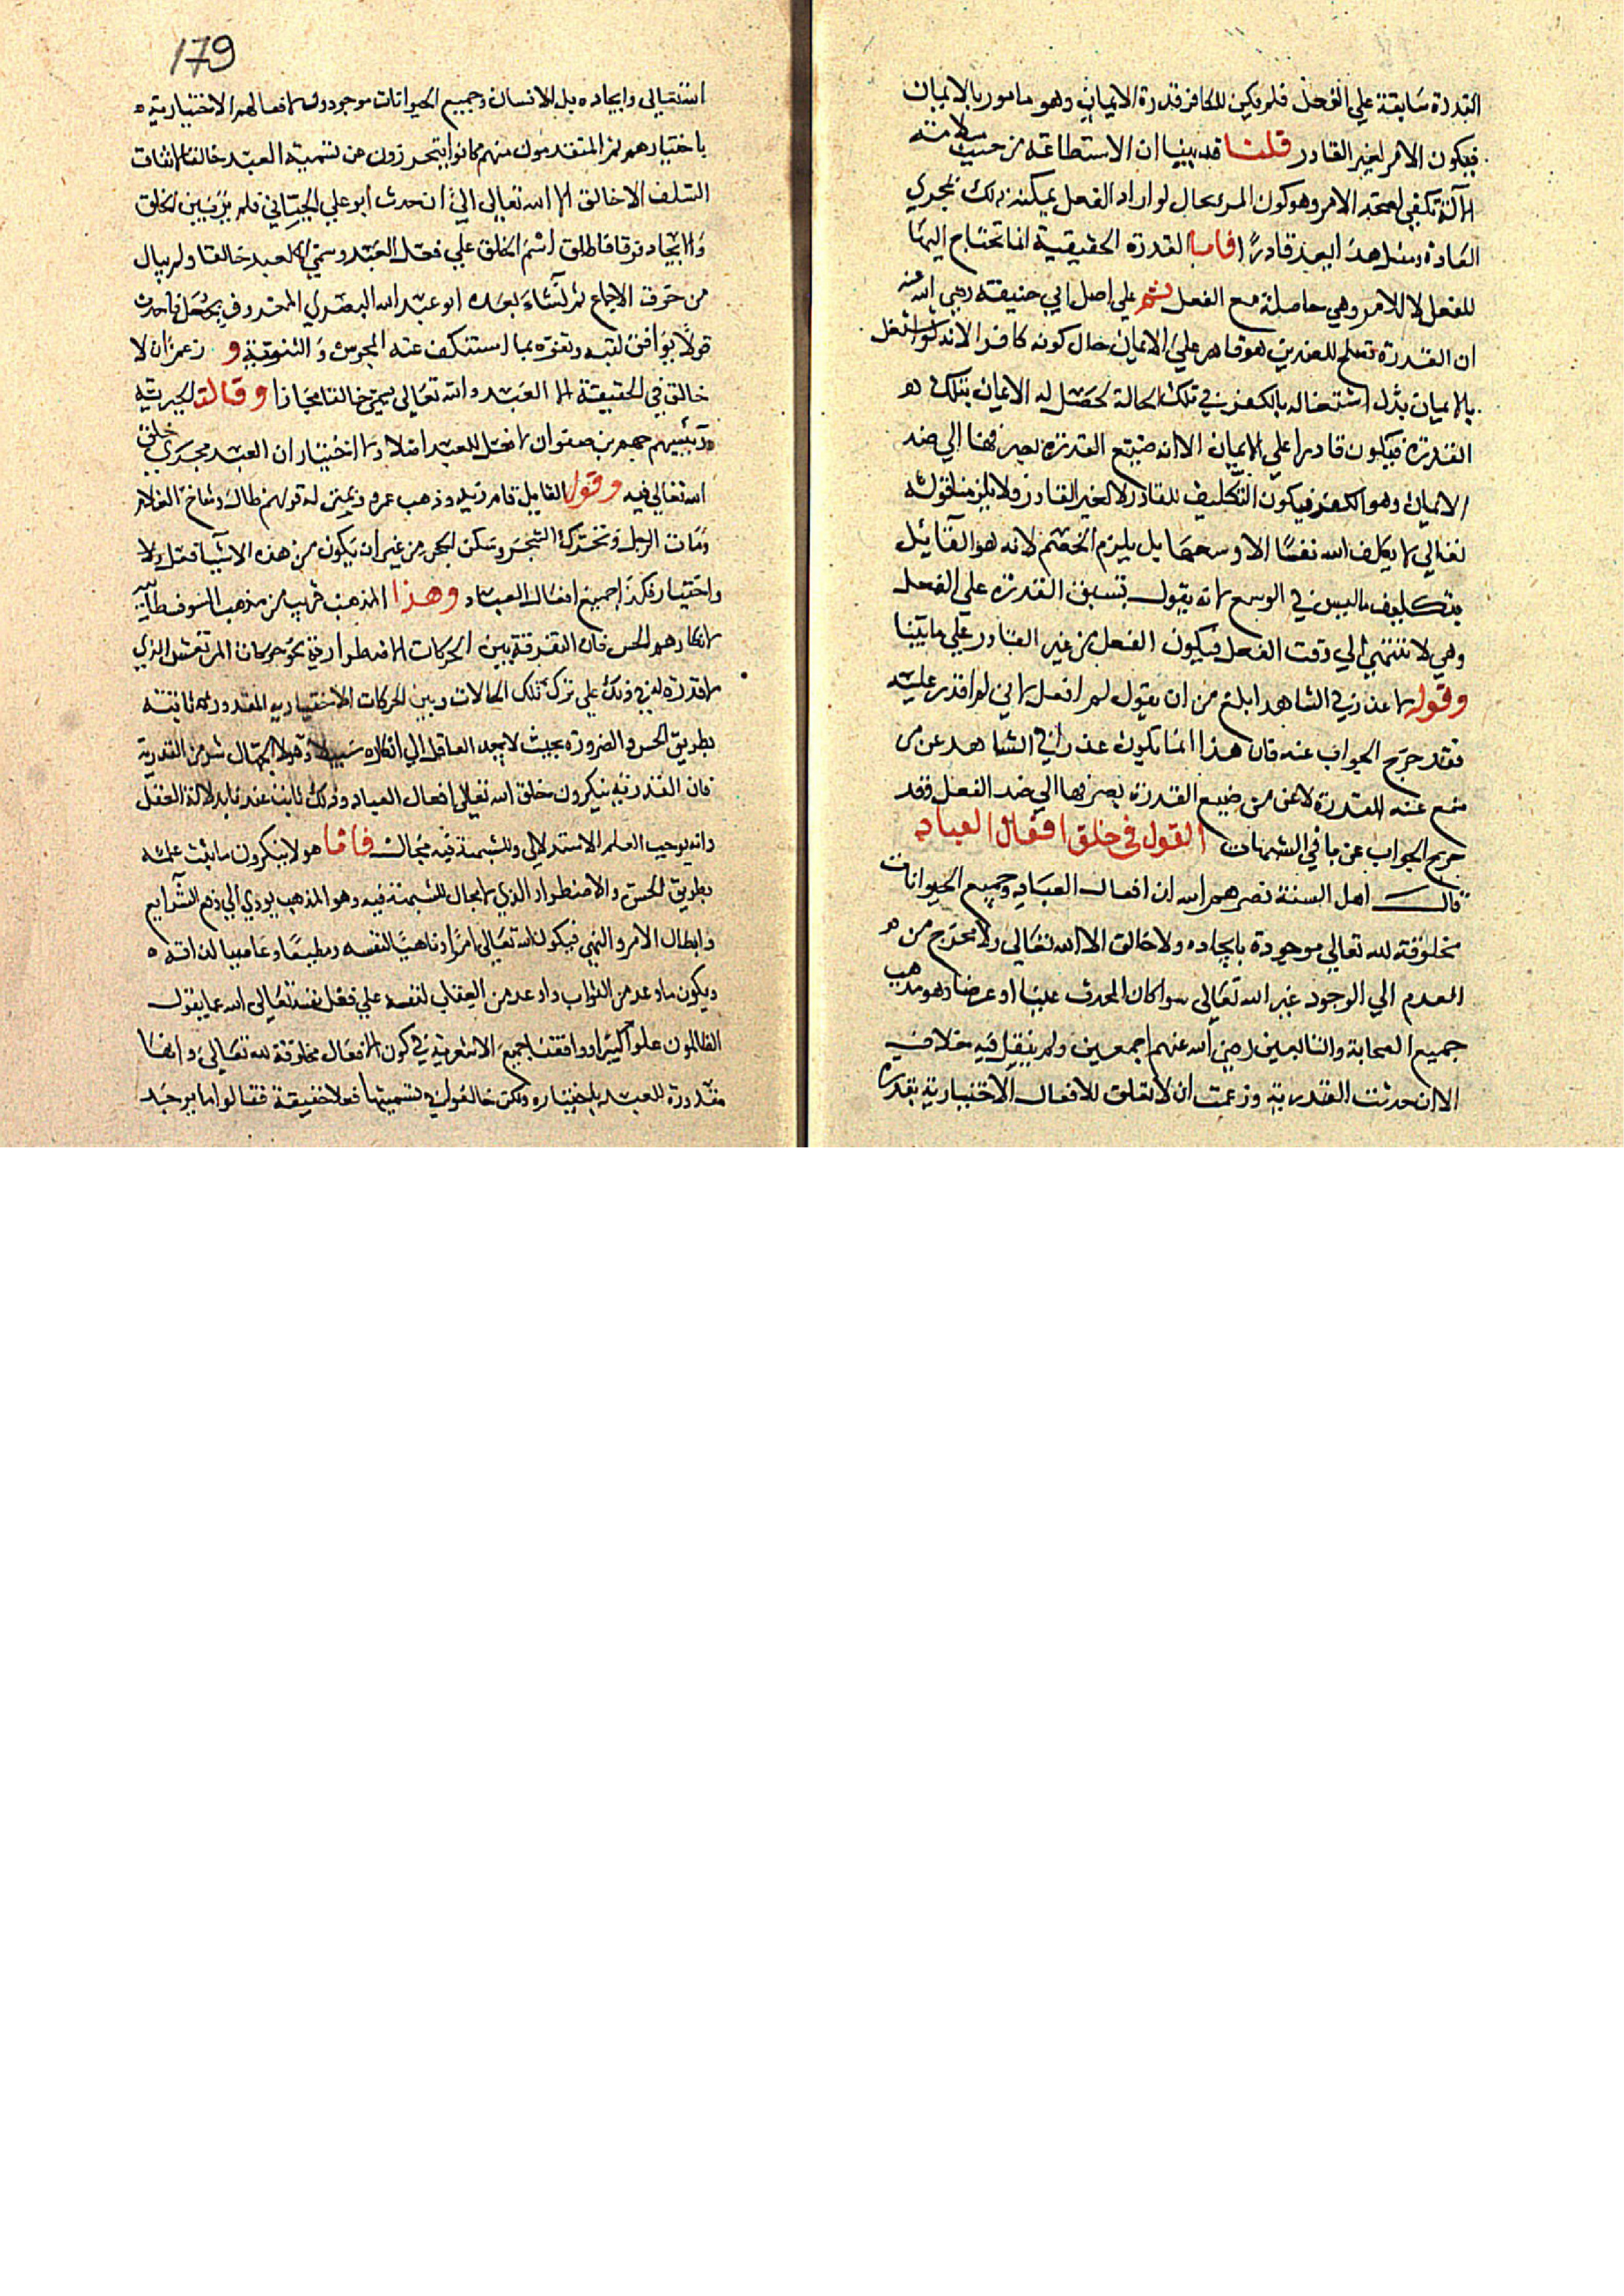 القدرة سابقة علي الفعل فلم يكن للكافر قدرة الايمان وهو مامور بالايمان
فيكون الامر لغير القادر قلنا قد بينا ان الاستطاعة من حيث سلامة
الآلة تكفي لصحة الامر وهو كون المرء بحال لو اراد الفعل يمكنه ذلك بمجري
العادة ومثل هذا يعد قادرًا فاما القدرة الحقيقية انما تحتاج اليها
للفعل لا للامر وهي حاصلة مع الفعل ثم علي اصل ابي حنيفة رضي الله عنه
ان القدرة تصلح للضدين هو قادر علي الايمان حال كونه كافرا لانه لو اشتغل
بالايمان بدل اشتغاله بالكفر في تلك الحالة لحصل له الايمان بتلك
القدرة فيكون قادرا علي الايمان الا انه ضيع القدرة بصرفها الي ضد
الايمان وهو الكفر فيكون التكليف للقادر لا لغير القادر ولا يلزمنا قوله
تعالي لا يكلف الله نفسًا الا وسعها بل يلزم الخصم لانه هو القائل
بتكليف ما ليس في الوسع لانه يقول بتسبق القدرة علي الفعل
وهي لا تنتهي الي وقت الفعل فيكون الفعل من غير القادر علي ما بينا
وقوله لا عذر في الشاهد ابلغ من ان يقول لم افعل لاني لم اقدر عليه
فقد خرج الجواب عنه فان هذا انما يكون عذرا في الشاهد عن من
منع عنه القدرة لا عن من ضيع القدرة بصرفها الي ضد الفعل وقد
خرج الجواب عن باقي الشبهات القول في خلق افعال العباد
قال اهل السنة نصرهم الله ان افعال العباد وجميع الحيوانات
مخلوقة لله تعالي موجودة بايجاده ولا خالق الا الله تعالي ولا مخرج من
العدم الي الوجود غير الله تعالي سوا كان المحدث عينا او عرضا وهو مذهب
جميع الصحابة والتابعين رضي الله عنهم اجمعين ولم ينقل فيه خلاف
الا ان حدثت القدرية وزعمت ان لا تعلق للافعال الاختيارية بقدرة
الله تعالي وايجاده بل الانسان وجميع الحيوانات موجدون لافعالهم الاختيارية
باختيارهم ثم المتقدمون منهم كانوا يتحرزون عن تسمية العبد خالقا لاتفاق
السلف الا خالق الا الله تعالي الي ان حدث ابو علي الجبائي فلم ير فرقا بين الخلق
والايجاد فرقا فاطلق اسم الخلق علي فعل العبد وسمي العبد خالقا ولم يبال
من خرق الاجماع ثم نشاء بعده ابو عبد الله البصري المعروف بجعل فاحدث
قولًا يوافق لقبه وتفوه بما استنكف عنه المجوس والثنوية و زعم ان لا
خالق في الحقيقة الا العبد والله تعالي يسمي خالقا مجازا وقالت الجبرية
ورئيسهم جهم بن صفوان لا فعل للعبد اصلا ولا اختيار ان العبد مجري خلق
الله تعالي فيه وقول القايل قام زيد وذهب عمرو بمنزلة قولهم طال وشاخ الغلام
ومات الرجل وتحرك الشجر وسكن الحجر من غير ان يكون من هذه الاشيآء فعل ولا
واختيار فكذا جميع افعال العباد وهذا المذهب قريب من مذهب السوفسطائية
لانكارهم الحس فان التفرقة بين الحركات الاضطرارية نحو حركات المرتعش الذي
لا قدرة له في ذلك علي ترك تلك الحالات وبين الحركات الاختيارية المقدورة ثابتة
بطريق الحس والضرورة بحيث لا يجد العاقل الي انكاره سبيلا وهولا الجهال شر من القدرية
فان القدرية ينكرون خلق الله تعالي افعال العباد وذلك ثابت عندنا بدلالة العقل
وانه يوجب العلم الاستدلالي وللشبهة فيه مجال فاما هولا ينكرون ما يثبت علمه
بطريق الحس والاضطرار الذي لا مجال للشبهة فيه وهو المذهب يودي الي رفع الشرايع
وابطال الامر والنهي فيكون الله تعالي امرًا وناهيًا لنفسه ومطيعًا وعاصيا لذاته
ويكون ما وعد من الثواب واوعد من العقاب لنفسه علي فعل نفسه تعالي الله عما يقول
الظالمون علوا كبيرا ووافقنا جميع الاشعرية في كون الافعال مخلوقة لله تعالي وانها
مقدورة للعبد باختياره ولكن خالفونا في تسميتها فعلا حقيقة فقالوا ما يوجد
179